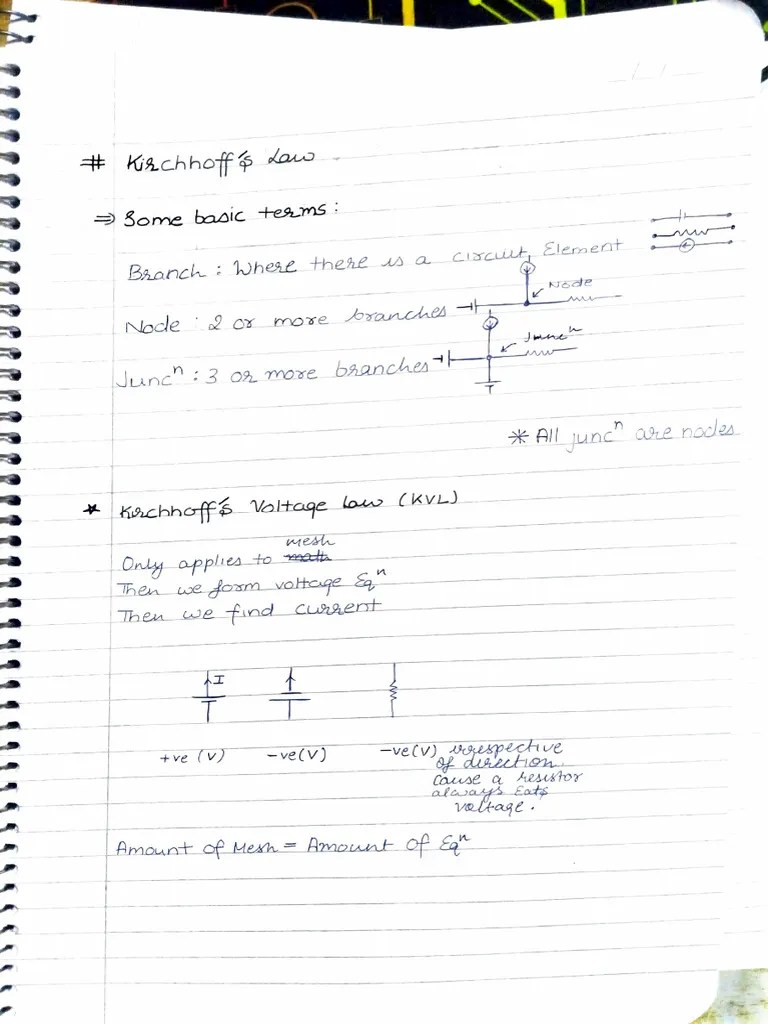 # Kirchhoff's Law
⇒ Some basic terms:
Branch : Where there is a circuit Element
Node : 2 or more branches
Node
Juncⁿ : 3 or more branches
Juncⁿ
* All juncⁿ are nodes
* Kirchhoff's Voltage Law (KVL)
mesh
Only applies to math
Then we form voltage Eqⁿ
Then we find current
I
+ve (V) -ve(V) -ve(V) irrespective
of direction.
cause a resistor
always Eats
voltage.
Amount of Mesh = Amount of Eqⁿ